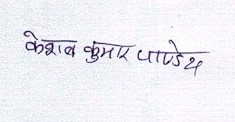 केशव कुमार पाण्डेय